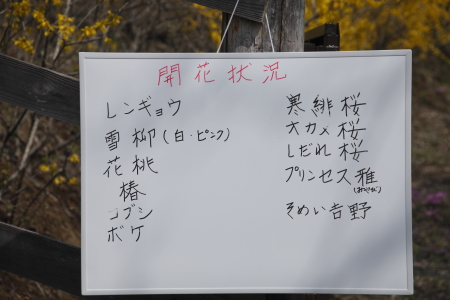 開花状況
レンギョウ
雪柳(白・ピンク)
花桃
椿
コブシ
ボケ
寒緋桜
オカメ桜
しだれ桜
プリンセス雅
そめい吉野